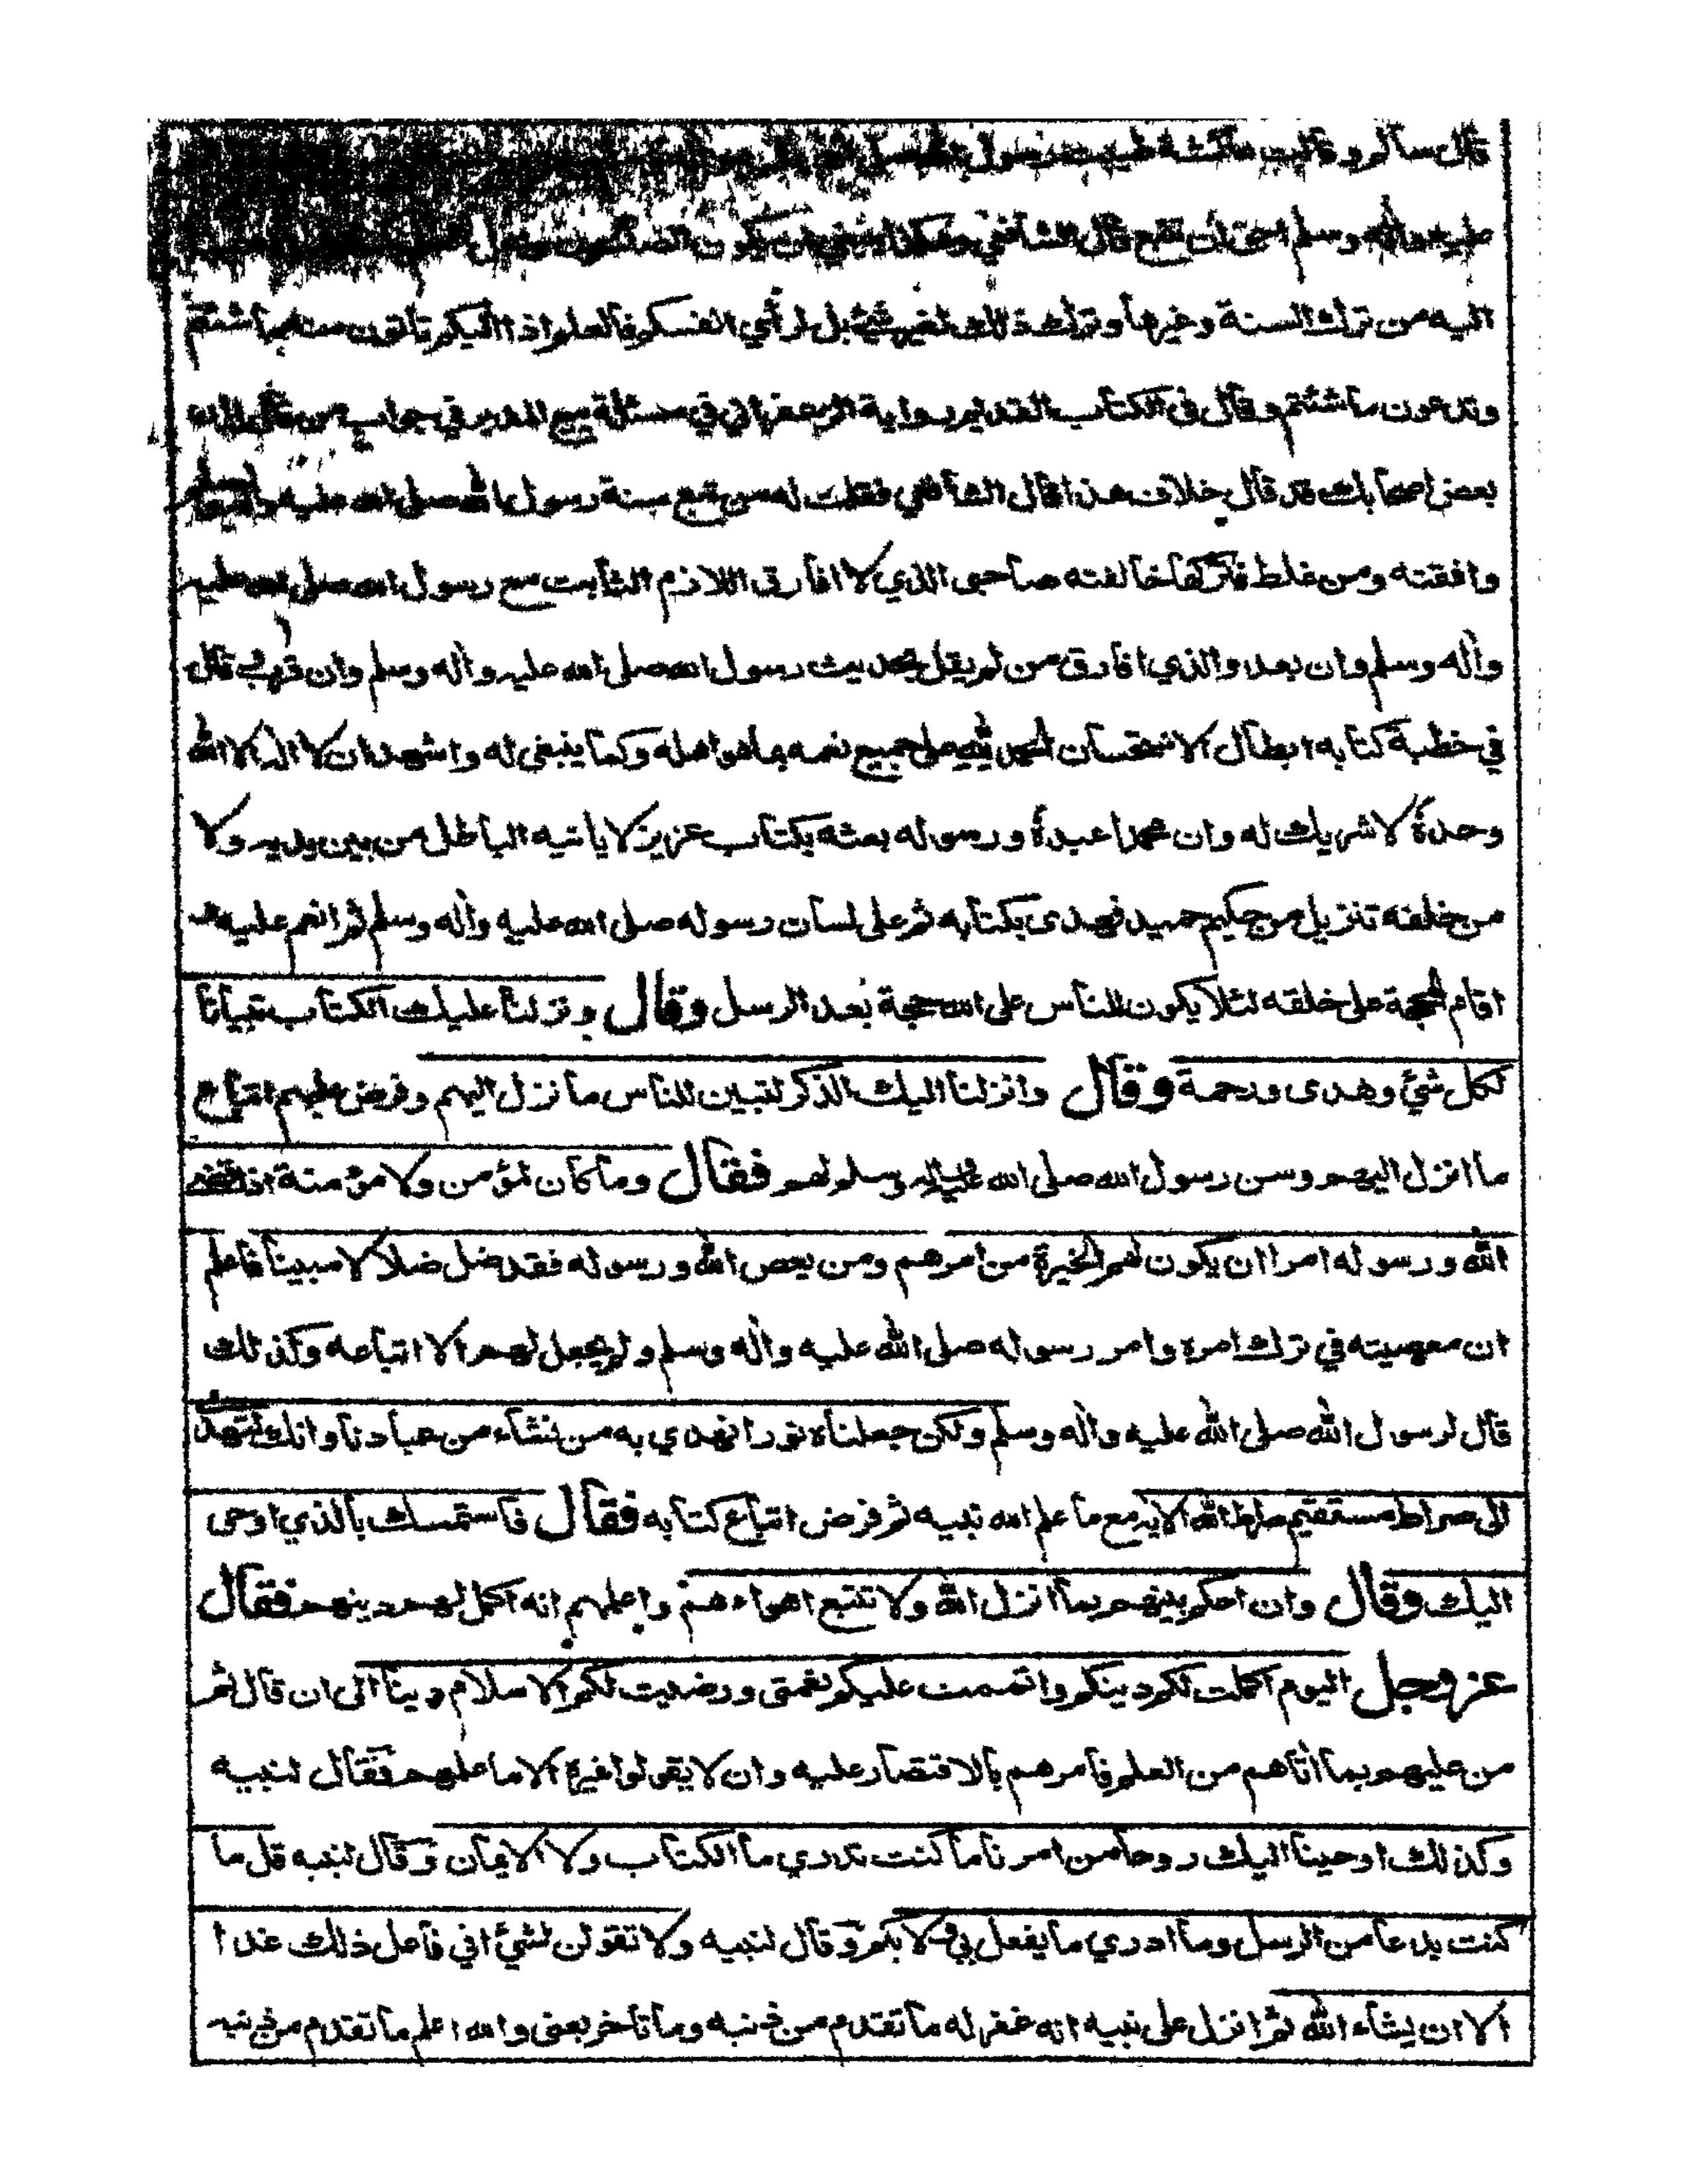 قال سالم وقالت عائشة طيبت رسول
عليه واله وسلم احق ان تتبع قال الشافعي وهكذا ينبغي ان يكون
اليه من ترك السنة وغيرها وترك ذلك لغير شئ بل لرأي انفسكم فالعلم اذا اليكم تأتون منه ما شئتم
وتدعون ما شئتم وقال فى الكتاب القديم برواية الزعفراني في مسئلة بيع المدبر في جواب من قال له
بعض اصحابك قد قال خلاف هذا قال الشافعي فقلت له من تبع سنة رسول الله صلى الله عليه واله وسلم
وافقته ومن غلط فتركها خالفته صاحبى الذي لا افارق اللازم الثابت مع رسول الله صلى الله عليه
واٰله وسلم وان بعد والذي افارق من لم يقل بحديث رسول الله صلى الله عليه واٰله وسلم وان قرب قال
في خطبة كتابه ابطال الاستحسان الحمد لله على جميع نعمه بما هو اهله وكما ينبغى له واشهد ان لا اله الا الله
وحدة لا شريك له وان محمدا عبدة ورسوله بعثه بكتاب عزيز لا يأتيه الباطل من بين يديه ولا
من خلفه تنزيل من حكيم حميد فهدى بكتابه ثم على لسان رسوله صلى الله عليه واٰله وسلم ثم انعم عليه
اقام الحجة على خلقه لئلا يكون للناس على الله حجة بعد الرسل وقال ونزلنا عليك الكتاب تبيانا
لكل شئ وهدى ورحمة وقال وانزلنا اليك الذكر لتبين للناس ما نزل اليهم وفرض عليهم اتباع
ما انزل اليهم وسن رسول الله صلى الله عليه واله وسلم لهم فقال وما كان لمؤمن ولا مؤمنة اذا قضى
الله ورسوله امرا ان يكون لهم الخيرة من امرهم ومن يعص الله ورسوله فقد ضل ضلالا مبينا فاعلم
ان معصيته في ترك امره وامر رسوله صلى الله عليه واٰله وسلم ولم يجعل لهم الا اتباعه وكذلك
قال لرسول الله صلى الله عليه واٰله وسلم ولكن جعلناه نورا نهدي به من نشاء من عبادنا وانك لتهدى
الى صراط مستقيم صراط الله الاية مع ما علم الله نبيه ثم فرض اتباع كتابه فقال فاستمسك بالذي اوحى
اليك وقال وان احكم بينهم بما انزل الله ولا تتبع اهواءهم واعلمهم انه اكمل لهم دينهم فقال
عز وجل اليوم اكملت لكم دينكم واتممت عليكم نعمتى ورضيت لكم الاسلام دينا الى ان قال ثم
من عليهم بما اٰتاهم من العلم فأمرهم بالاقتصار عليه وان لا يقولوا غيره الا ما علمهم فقال لنبيه
وكذلك اوحينا اليك روحا من امرنا ما كنت تدري ما الكتاب ولا الايمان وقال لنبيه قل ما
كنت بدعا من الرسل وما ادري ما يفعل بي ولا بكم وقال لنبيه ولا تقولن لشئ اني فاعل ذلك غدا
الا ان يشاء الله ثم انزل على نبيه انه غفر له ما تقدم من ذنبه وما تأخر يعنى والله اعلم ما تقدم من ذنبه